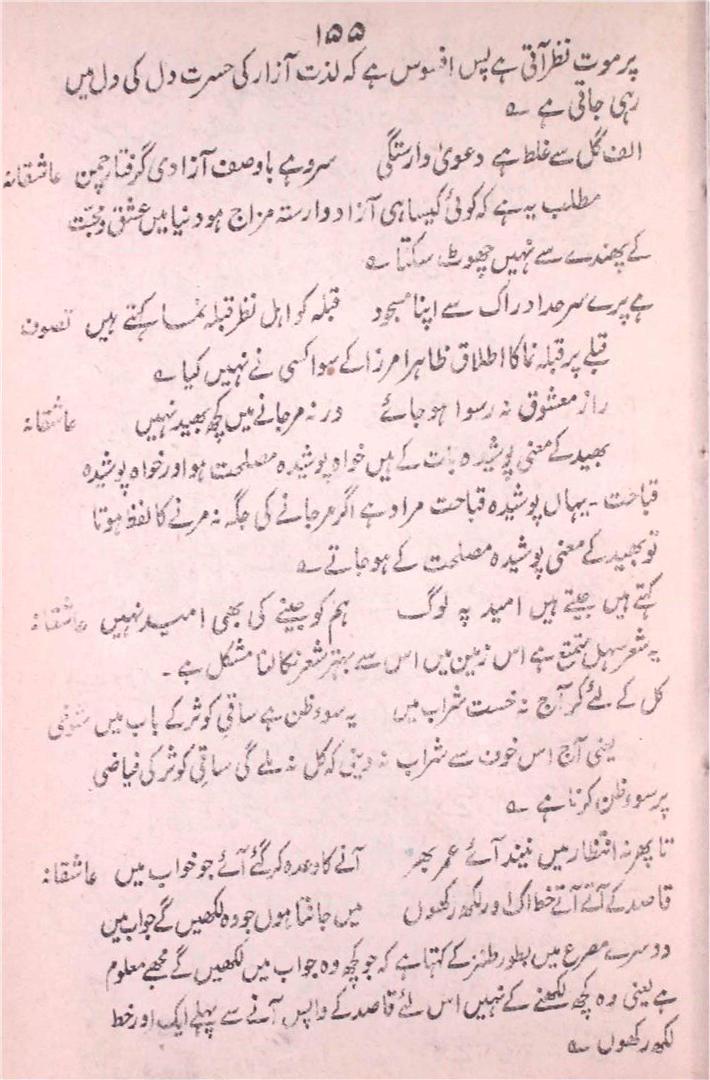 ۱۵۵
پر موت نظر آتی ہے پس افسوس ہے کہ لذت آزار کی حسرت دل کی دل میں
رہی جاتی ہے ؎
الف گل سے غلط ہے دعویٰ وارستگی سرو ہے باوصف آزادی گرفتار چمن عاشقانہ
مطلب یہ ہے کہ کوئی کیسا ہی آزاد وارستہ مزاج ہو دنیا میں عشق و محبت
کے پھندے سے نہیں چھوٹ سکتا ؎
ہے پرے سرحد ادراک سے اپنا مسجود قبلہ کو اہل نظر قبلہ نما کہتے ہیں تصوف
قبلے پر قبلہ نما کا اطلاق ظاہرا مرزا کے سوا کسی نے نہیں کیا ؎
راز معشوق نہ رسوا ہو جائے ورنہ مر جانے میں کچھ بھید نہیں عاشقانہ
بھید کے معنی پوشیدہ بات کے ہیں خواہ پوشیدہ مصلحت ہو اور خواہ پوشیدہ
قباحت ۔ یہاں پوشیدہ قباحت مراد ہے اگر مر جانے کی جگہ نہ مرنے کا لفظ ہوتا
تو بھید کے معنی پوشیدہ مصلحت کے ہو جاتے ؎
کہتے ہیں جیتے ہیں امید پہ لوگ ہم کو جینے کی بھی امید نہیں عاشقانہ
یہ شعر سہل ممتنع ہے اس زمین میں اس سے بہتر شعر نکالنا مشکل ہے ۔
کل کے لئے کر آج نہ خست شراب میں یہ سوء ظن ہے ساقی کوثر کے باب میں شوخی
یعنی آج اس خوف سے شراب نہ دینی کہ کل نہ ملے گی ساقی کوثر کی فیاضی
پر سوء ظن کرنا ہے ؎
تا پھر نہ انتظار میں نیند آئے عمر بھر آنے کا وعدہ کر گئے آئے جو خواب میں عاشقانہ
قاصد کے آتے آتے خط اک اور لکھ رکھوں میں جانتا ہوں جو وہ لکھیں گے جواب میں
دوسرے مصرع میں بطور طنز کے کہتا ہے کہ جو کچھ وہ جواب میں لکھیں گے مجھے معلوم
ہے یعنی وہ کچھ لکھنے کے نہیں اس لئے قاصد کے واپس آنے سے پہلے ایک اور خط
لکھ رکھوں ؎